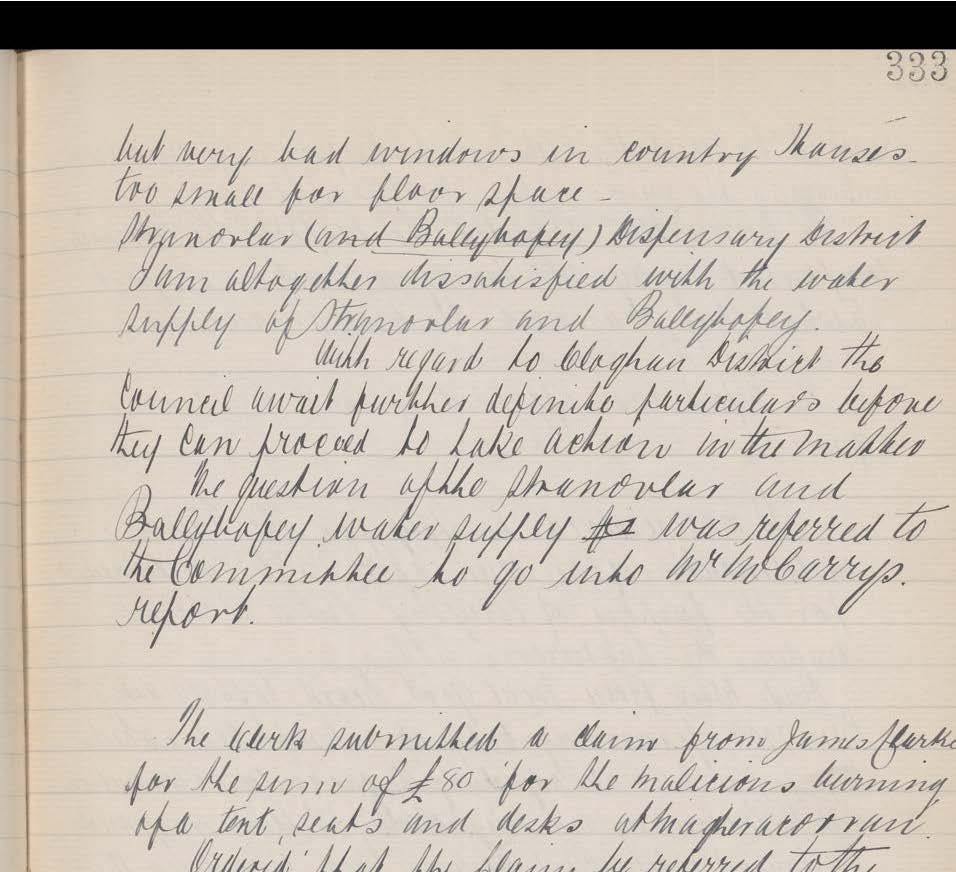 333
but very bad windows in country Houses -
too small for floor space -
Stranorlar (and Ballybofey) Dispensary District
I am altogether dissatisfied with the water
supply of Stranorlar and Ballybofey.
With regard to Cloghan District the
Council await further definite particulars before
they can proceed to take action in the matter
The question of the Stranorlar and
Ballybofey water supply was referred to
the Committee to go into Mr McCarrys.
report.
The Clerk submitted a claim from James Clarke
for the sum of £80 for the malicious burning
of a tent, seats and desks at Magheracorran.
Ordered that the Claim be referred to the